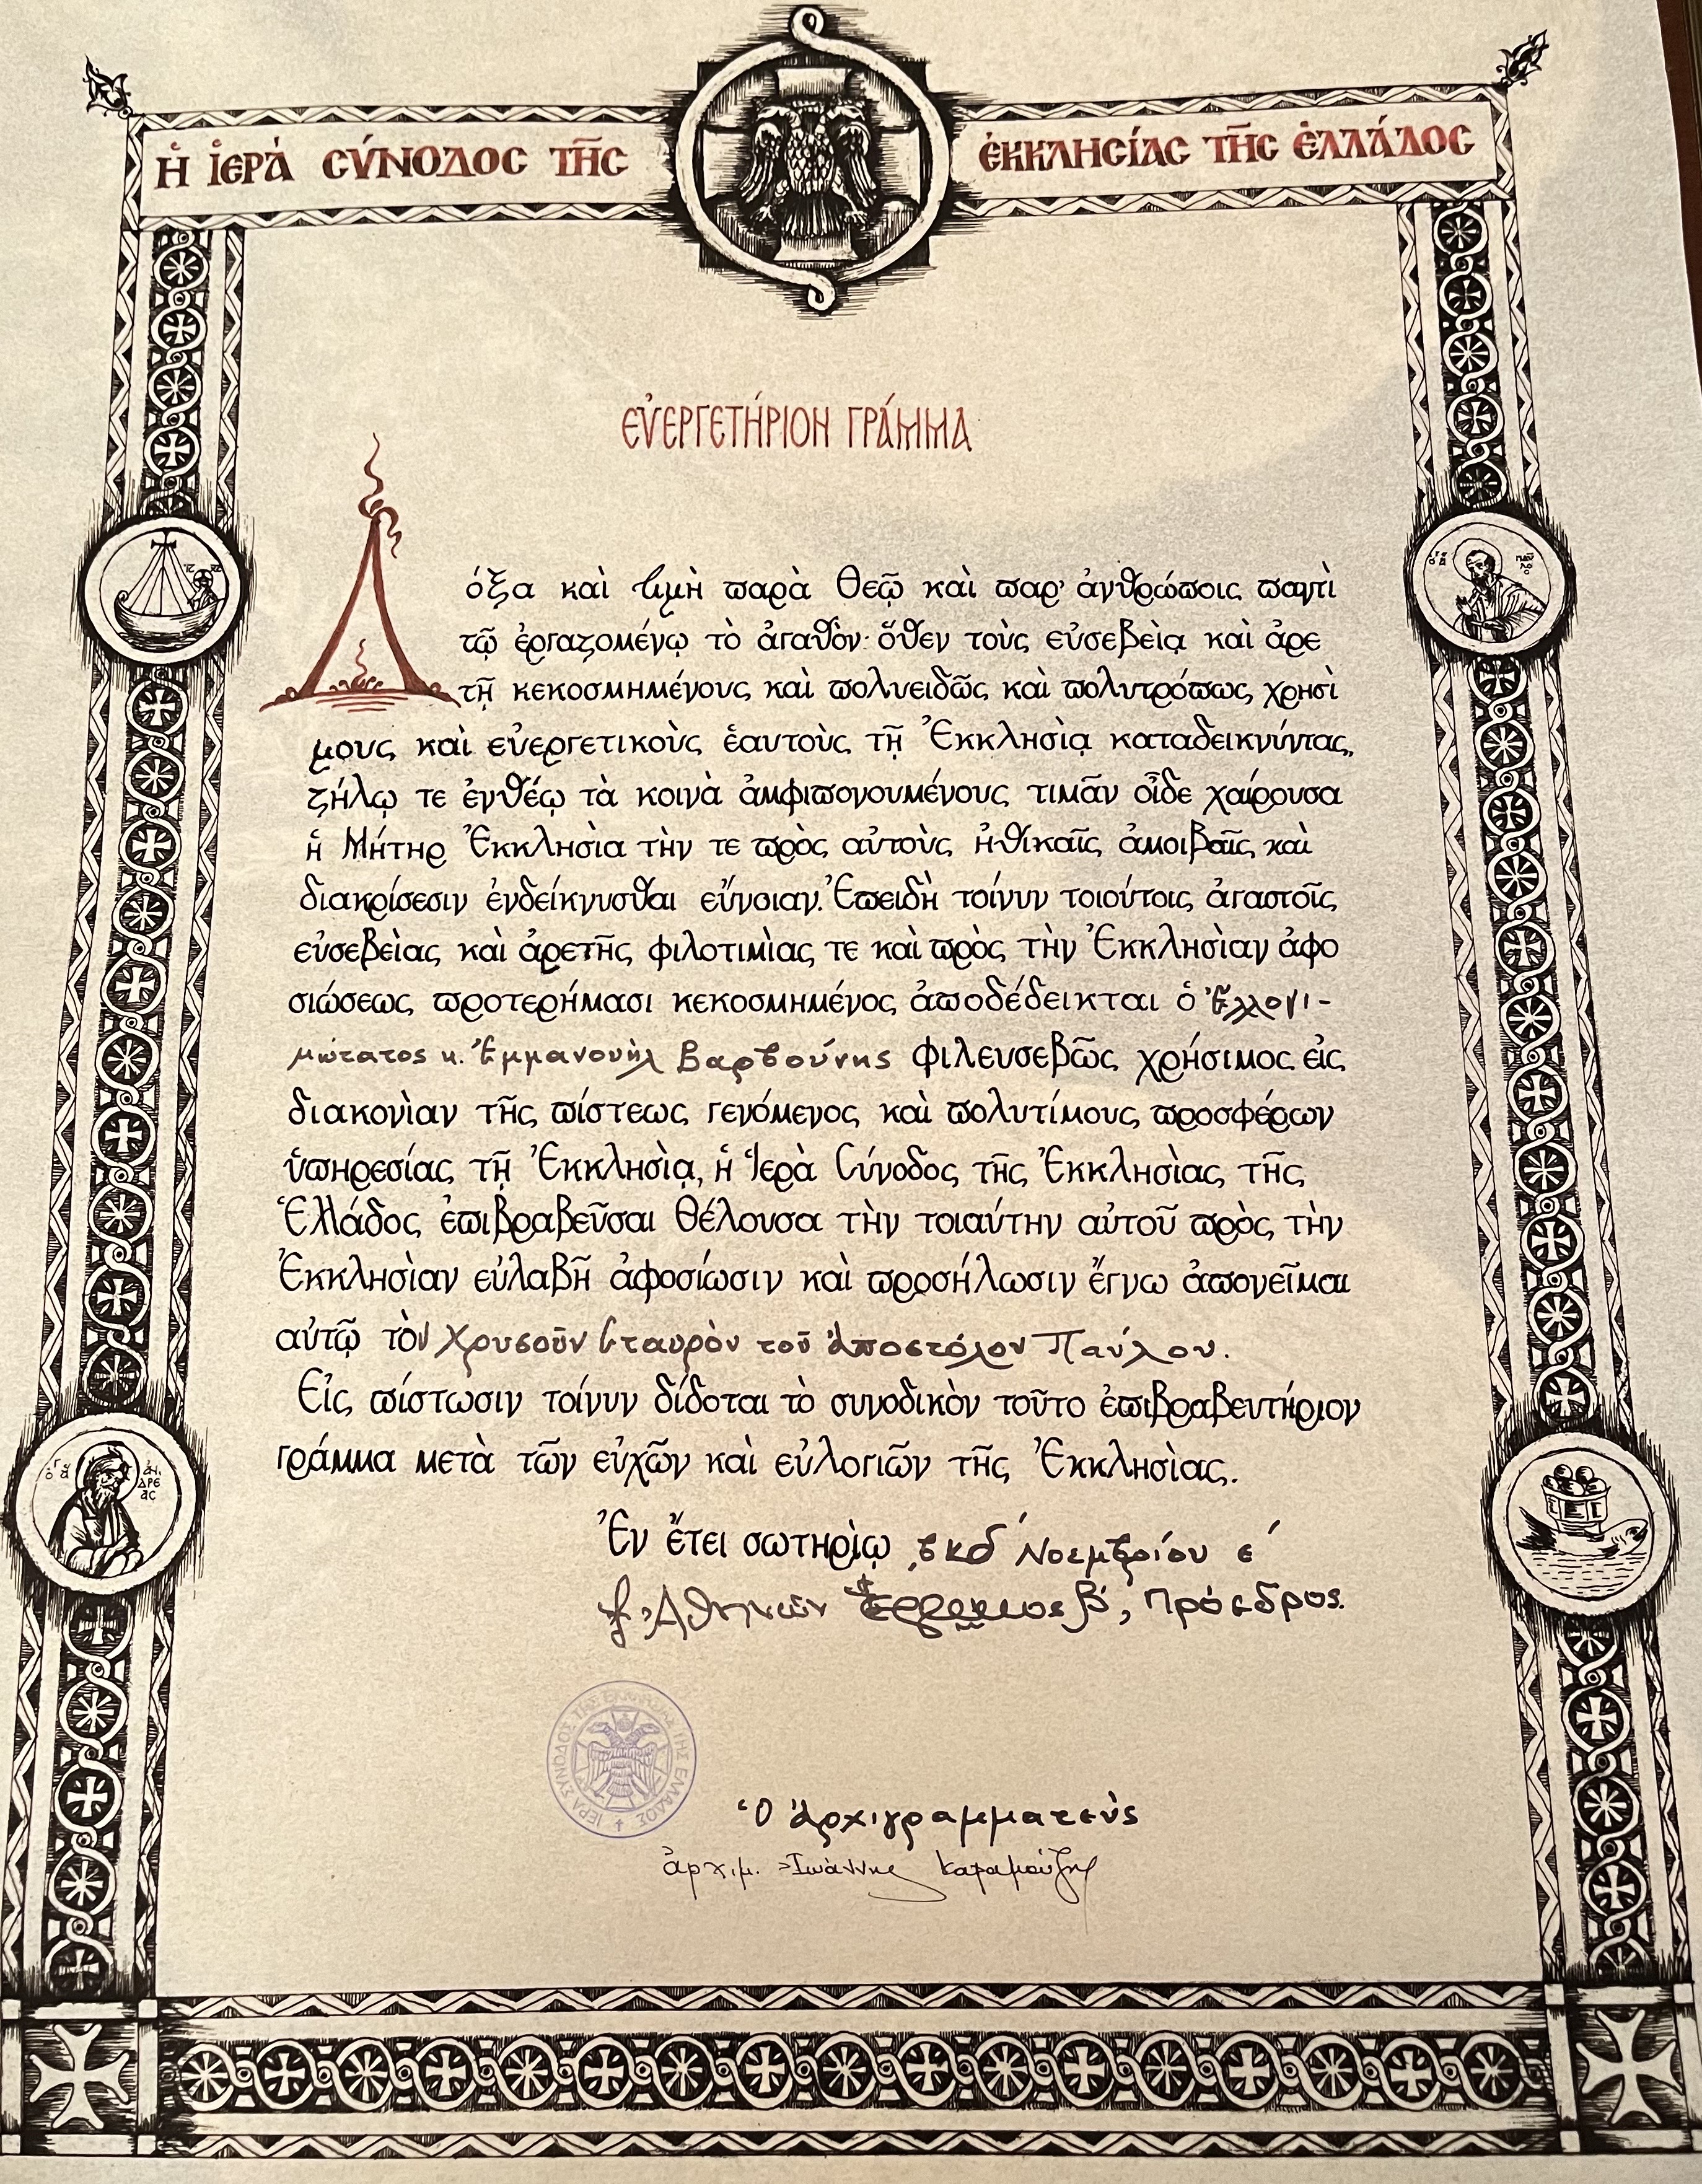 Ἡ ἹΕΡᾺ ΣΎΝΟΔΟΣ ΤΗ͂Σ ἘΚΚΛΗΣΊΑΣ ΤΗ͂Σ ἙΛΛΆΔΟΣ
ΕὙΕΡΓΕΤΉΡΙΟΝ ΓΡΆΜΜΑ
Δόξα καὶ τιμὴ παρὰ Θεῷ καὶ παρ' ἀνθρώποις παντὶ
τῷ ἐργαζομένῳ τὸ ἀγαθὸν· ὅθεν τοὺς εὐσεβεὶᾳ καὶ ἀρε
τῇ κεκοσμημένους καὶ πολυειδῶς καὶ πολυτρόπως χρησὶ
μους καὶ εὐεργετικοὺς ἑαυτοὺς τῇ Ἐκκλησὶᾳ καταδεικνύντας,
ζήλῳ τε ἐνθέῳ τὰ κοινὰ ἀμφιπονουμένους τιμᾶν οἶδε χαίρουσα
ἡ Μήτηρ Ἐκκλησὶα τὴν τε πρὸς αὐτοὺς ἠθικαῖς ἀμοιβαῖς καὶ
διακρίσεσιν ἐνδείκνυσθαι εὔνοιαν. Ἐπειδὴ τοίνυν τοιούτοις ἀγαστοῖς
εὐσεβεὶας καὶ ἀρετῆς φιλοτιμὶας τε καὶ πρὸς τὴν Ἐκκλησὶαν ἀφο
σιώσεως προτερήμασι κεκοσμημένος ἀποδέδεικται ὁ Ἐλλογι-
μώτατος κ. Ἐμμανουὴλ Βαρβούνης φιλευσεβῶς χρήσιμος εἰς
διακονὶαν τῆς πίστεως γενόμενος καὶ πολυτίμους προσφέρων
ὑπηρεσίας τῇ Ἐκκλησὶᾳ, ἡ Ἱερὰ Σύνοδος τῆς Ἐκκλησὶας τῆς
Ἑλλάδος ἐπιβραβεῦσαι θέλουσα τὴν τοιαύτην αὐτοῦ πρὸς τὴν
Ἐκκλησὶαν εὐλαβῆ ἀφοσίωσιν καὶ προσήλωσιν ἔγνω ἀπονεῖμαι
αὐτῷ τὸν Χρυσοῦν Σταυρὸν τοῦ Ἀποστόλου Παύλου.
Εἰς πίστωσιν τοίνυν δίδοται τὸ συνοδικὸν τοῦτο ἐπιβραβευτήριον
γράμμα μετὰ τῶν εὐχῶν καὶ εὐλογιῶν τῆς Ἐκκλησὶας.
Ἐν ἔτει σωτηρὶῳ ͵βκδ΄ Νοεμβρίου ε΄
† Ἀθηνῶν Ἱερώνυμος Β΄, Πρόεδρος.
ΙΕΡΑ ΣΥΝΟΔΟΣ ΤΗΣ ΕΚΚΛΗΣΙΑΣ ΤΗΣ ΕΛΛΑΔΟΣ
Ὁ Ἀρχιγραμματεὺς
ἀρχιμ. Ἰωάννης Καραμούζης